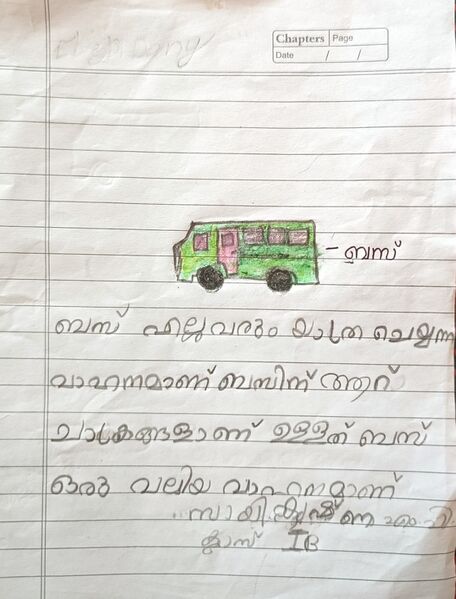 Chapters Page
Date / /
- ബസ്
ബസ് എല്ലവരും യാത്ര ചെയ്യുന്ന
വാഹനമാണ് ബസിന് ആറ്
ചാക്രങ്ങളാണ് ഉള്ളത് ബസ്
ഒരു വലിയ വാഹനമാണ്
സായി കൃഷ്ണ എം.വി.
ക്ലാസ് IB